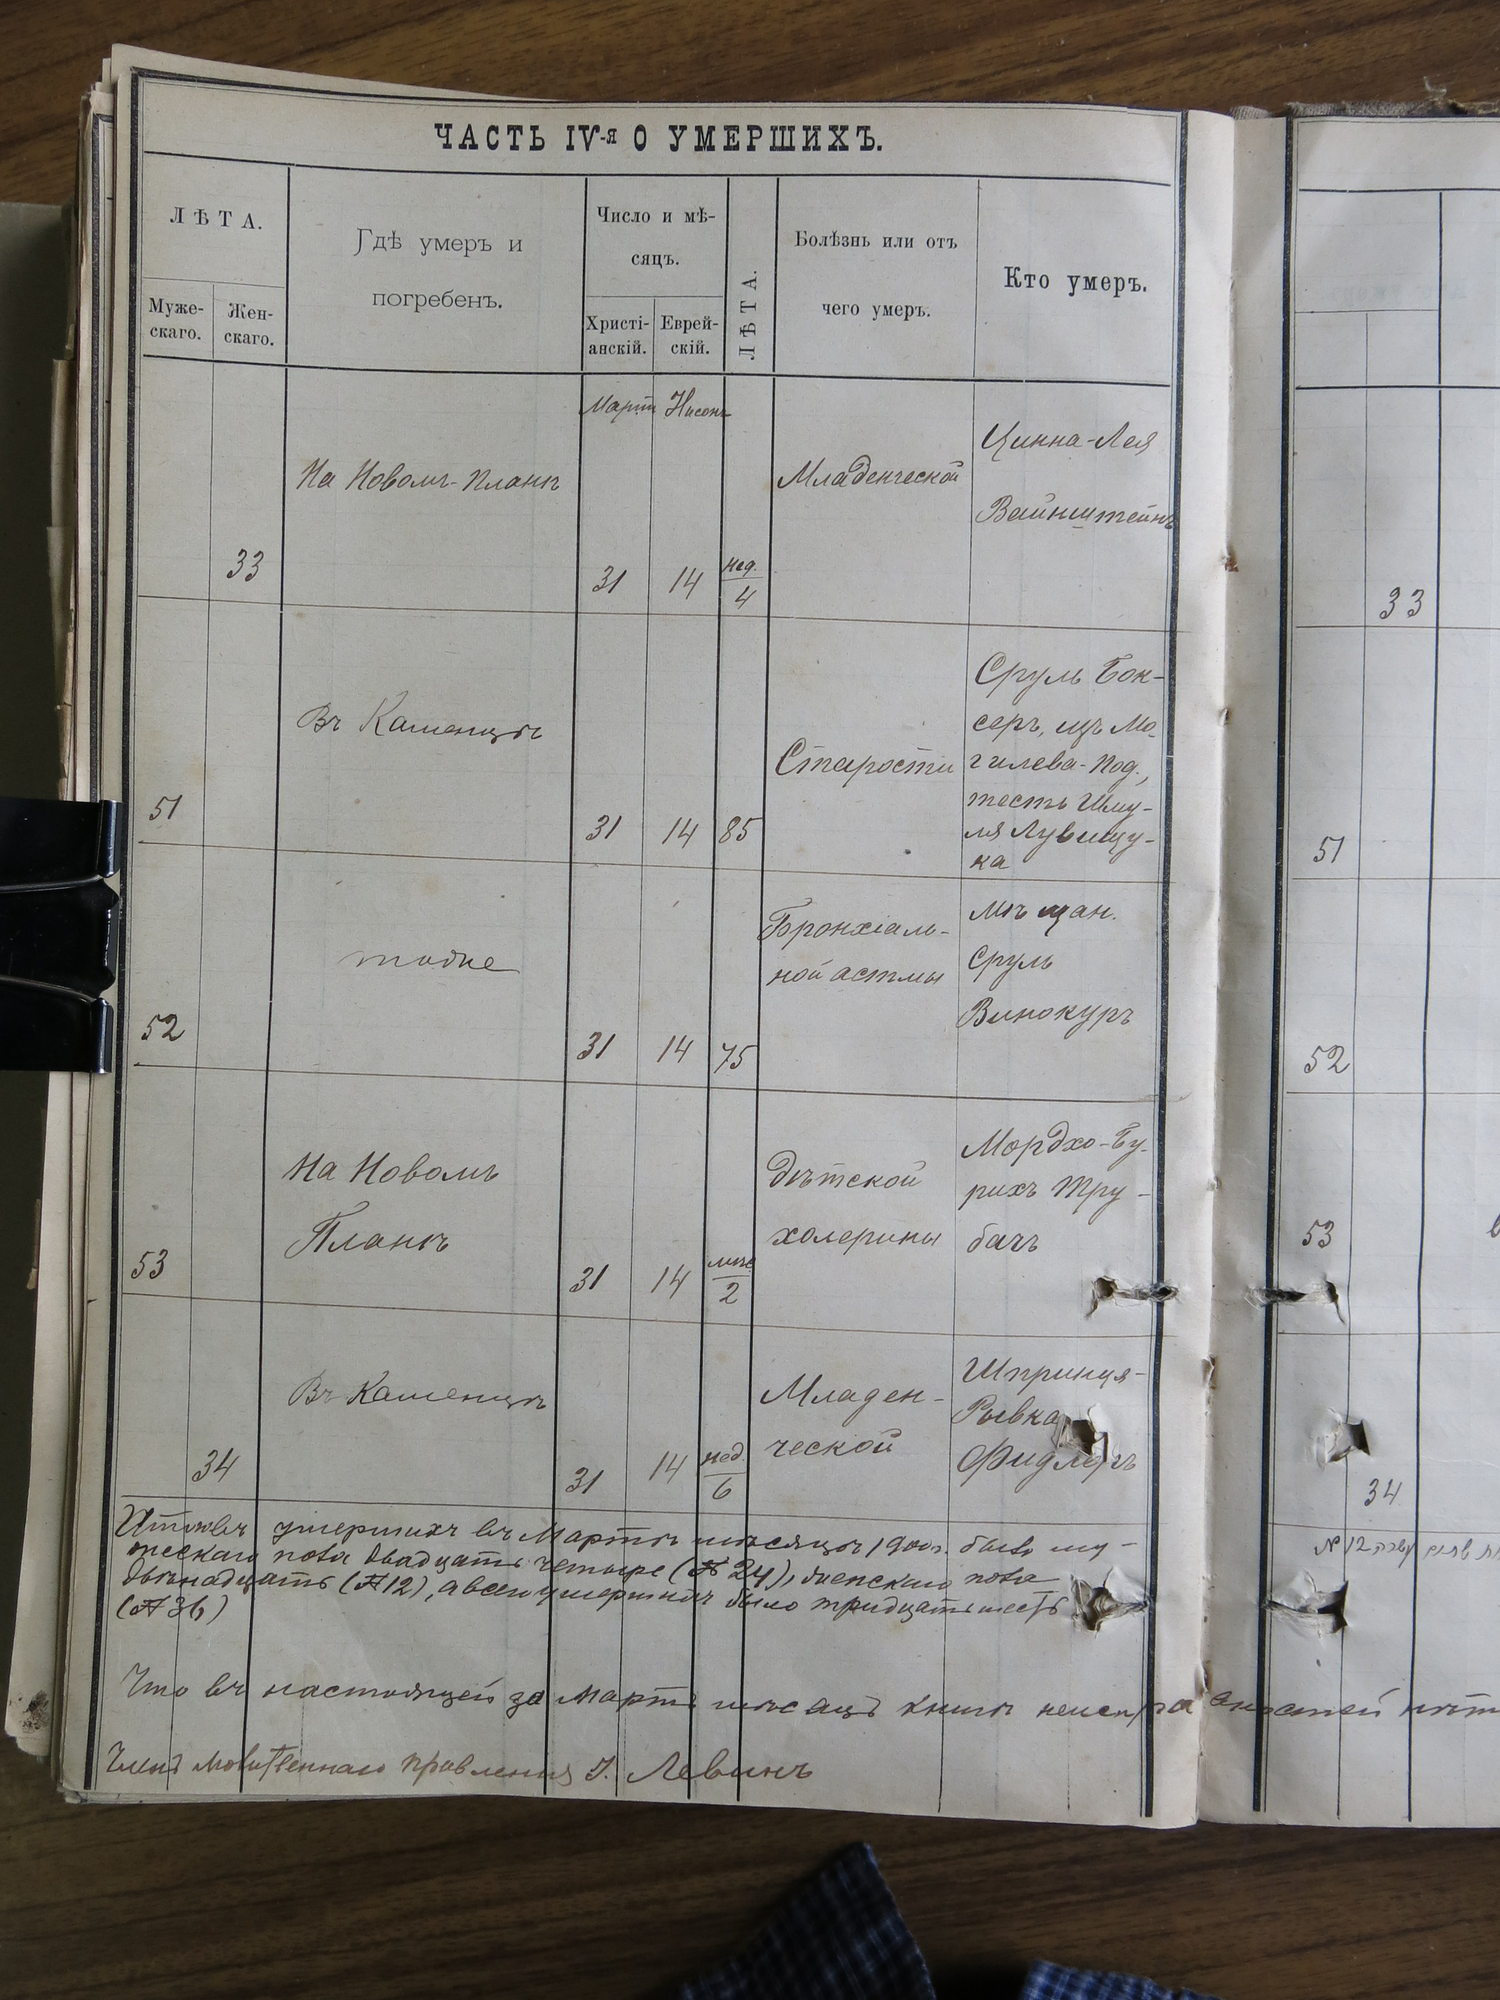 ЧАСТЬ IV-я О УМЕРШИХЪ.
ЛѢТА.
Муже-
скаго.
Жен-
скаго.
Гдѣ умеръ и
погребенъ.
Число и мѣ-
сяцъ.
Христі-
анскій.
Еврей-
скій.
ЛѢТА.
Болѣзнь или отъ
чего умеръ.
Кто умеръ.
Мартъ Нисонъ
33
На Новомъ-Планѣ
31
14
нед.
4
Младенческой
Цинна-Лея
Вайнштейнъ
33
51
Въ Каменцѣ
31
14
85
Старости
Сруль Бок-
серъ, изъ Мо-
гилева-Под.,
тесть Шму-
ля Лувищу-
ка
51
52
тоже
31
14
75
Бронхіаль-
ной астмы
мѣщан.
Сруль
Винокуръ
52
53
На Новомъ
Планѣ
31
14
мѣс
2
Дѣтской
холерины
Мордхо-Бу-
рихъ Тру-
бачъ
53
34
Въ Каменцѣ
31
14
нед.
6
Младен-
ческой
Шпринця-
Рывка
Фидлеръ
34
умершихъ въ Мартѣ мѣсяцѣ 1900г. было му-
жескаго пола двадцать четыре (№ 24), женскаго пола
двѣнадцать (№12), а всего умершихъ было тридцать шесть
(№ 36)
Что въ настоящей за Мартъ мѣсяцъ книгѣ неисправностей нѣт
Членъ молитвеннаго правленія І. Левинъ